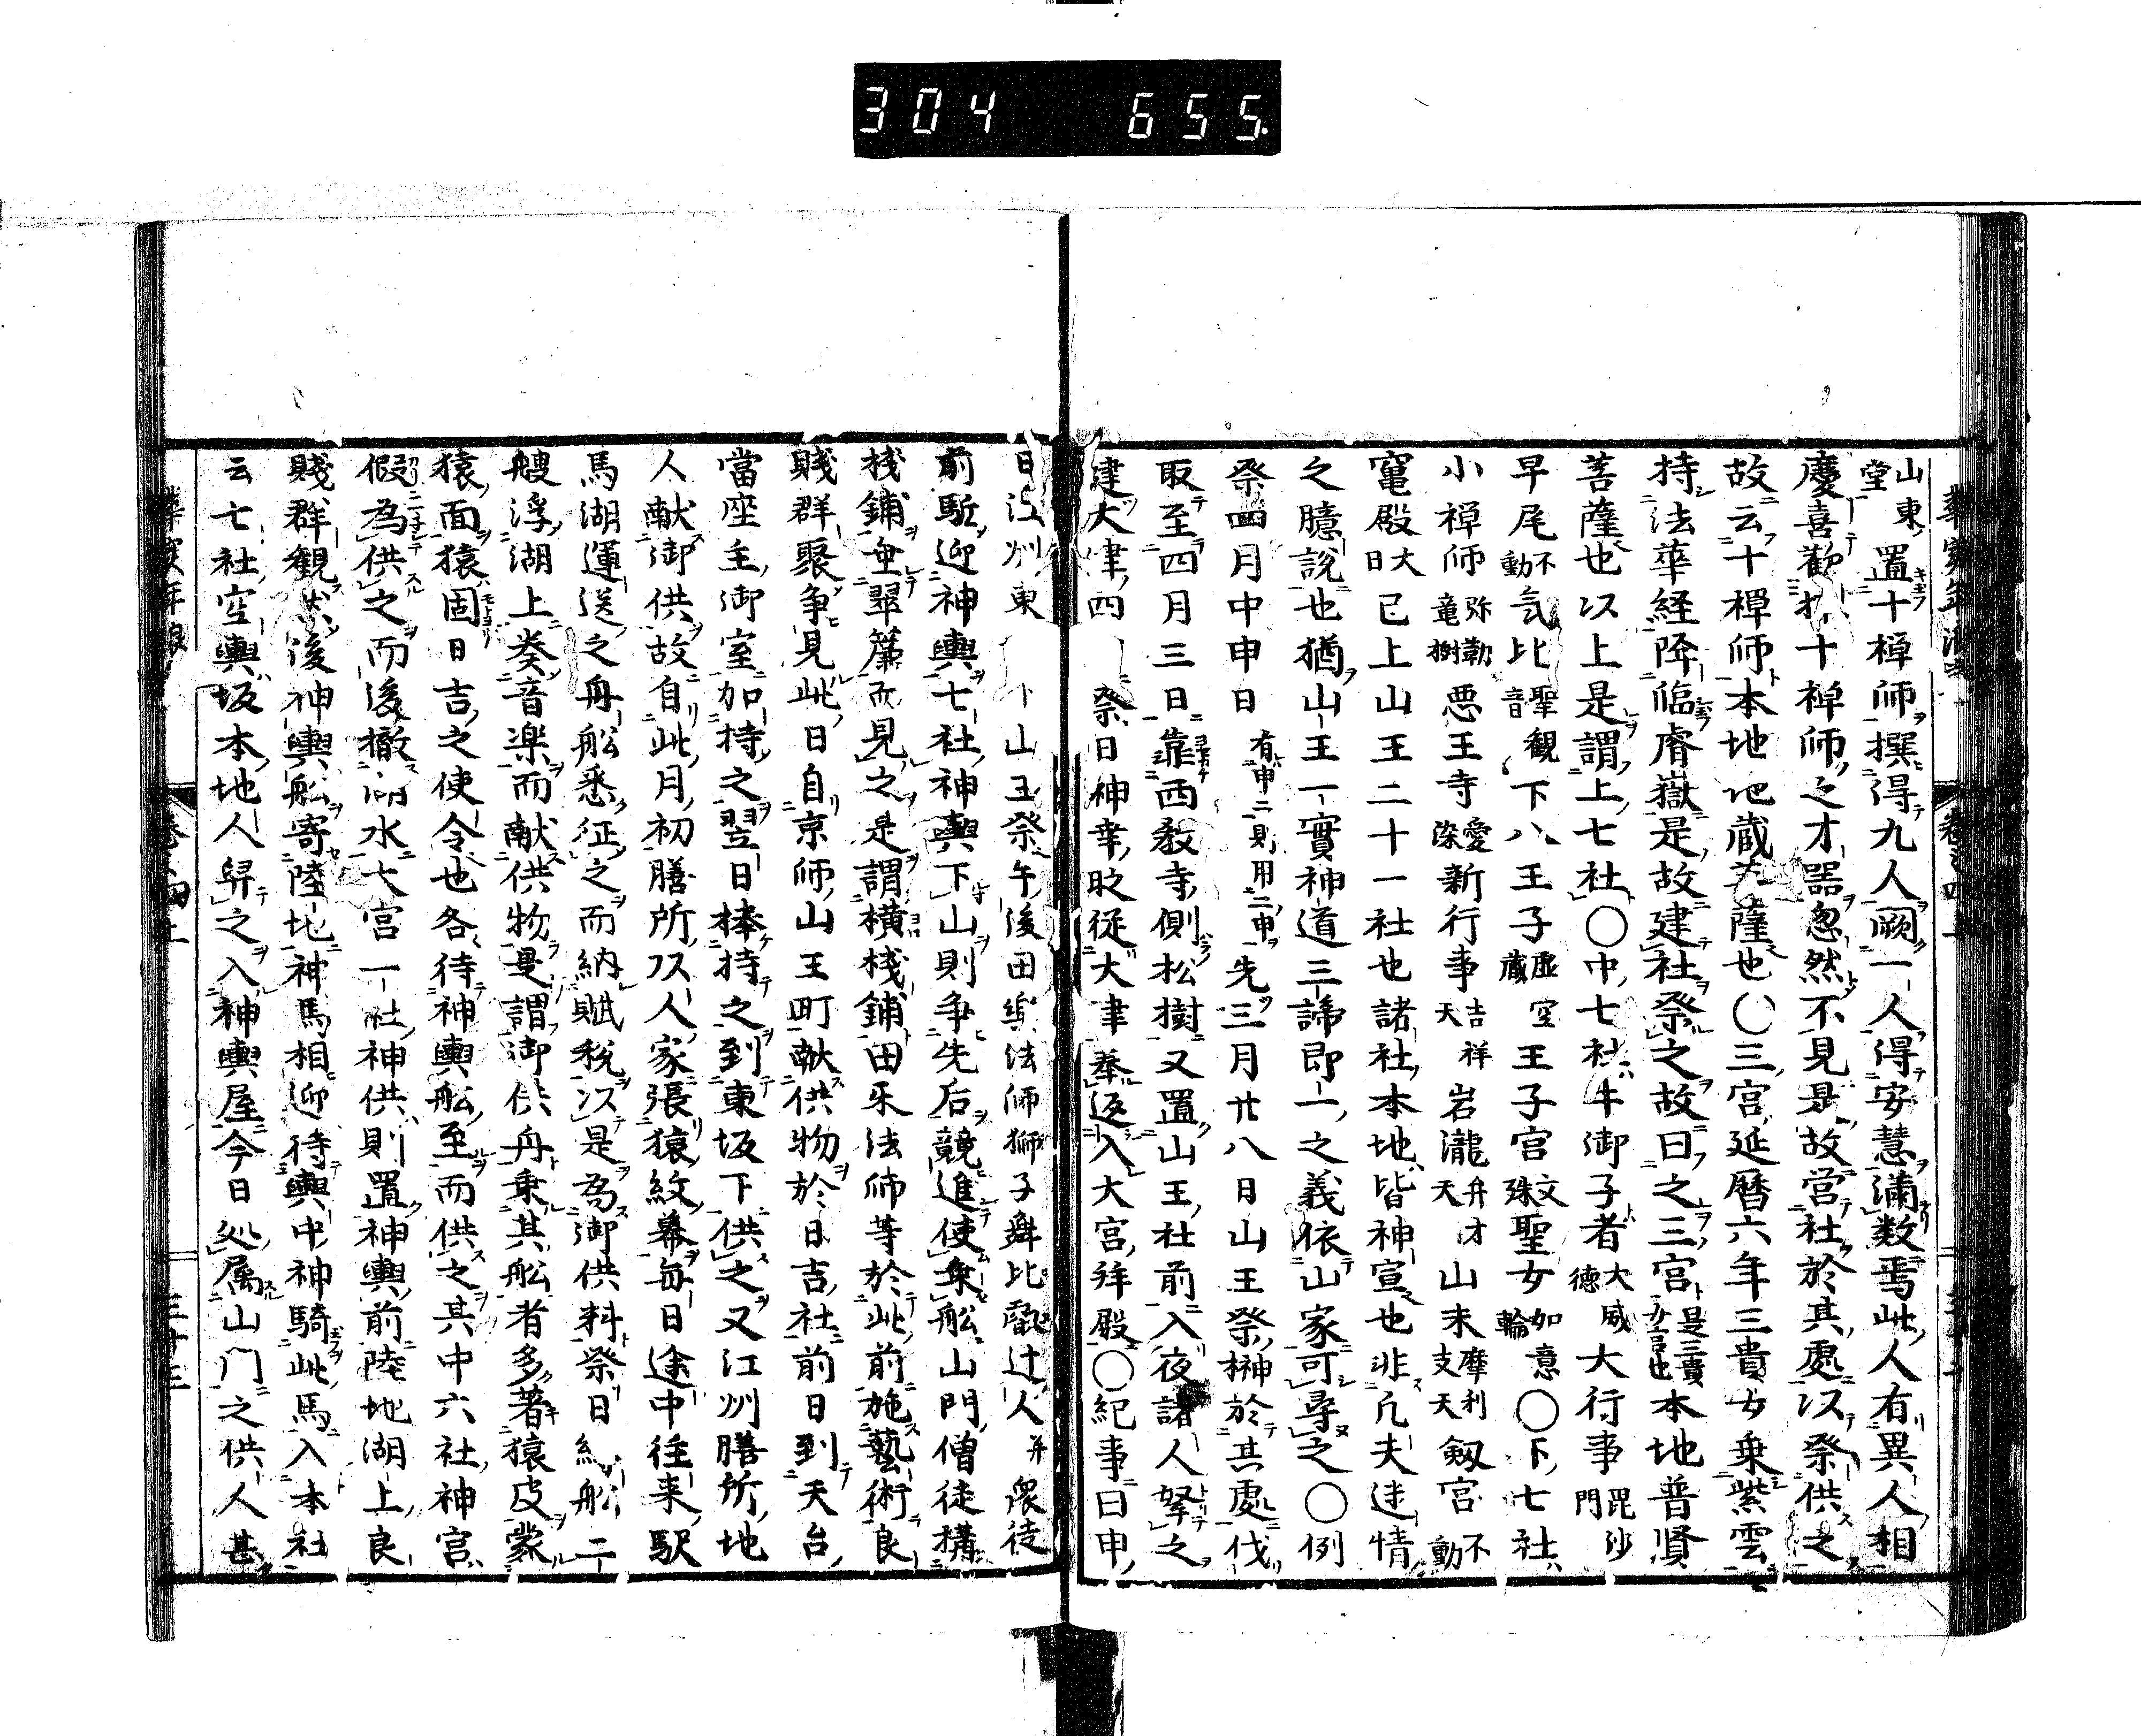 304 655.
山東堂置十禅師撰得九人闕一人得安慧満数焉此人有異人相
慶喜勧十禅師之才器忽然不見是故営社於其處以祭供之
故云十禅師本地地蔵菩薩也〇三宮延暦六年三貴女乗紫雲
持法華経降臨膚嶽是故建社祭之故曰之三宮是三貴女宮也本地普賢
菩薩也以上是謂上七社〇中七社牛御子者大威徳大行事毘沙門
早尾不動気比聖観音下八王子虚空蔵王子宮文殊聖女如意輪〇下七社
小禅師弥勒竜樹悪王寺愛染新行事吉祥天岩瀧弁才天山末摩利支天剱宮不動
竃殿大日已上山王二十一社也諸社本地皆神宣也非凡夫迷情
之臆説也猶山王一實神道三諦即一之義依山家可尋之〇例
祭四月中申日有申二則用二申先三月廿八日山王祭榊於其處伐
取至四月三日靠西教寺側松樹又置山王社前入夜諸人拏之
建大津四 祭日神幸時従大津奉返入大宮拜殿〇紀事曰申
日江州東 山王祭午後田樂法師獅子舞比叡辻人并衆徒
前駈迎神輿七社神輿下山則争先后競進使乗舩山門僧徒構
棧鋪垂翠簾而見之是謂横棧鋪田楽法師等於此前施藝術良
賎群聚争見此日自京師山王町献供物於日吉社前日到天台
當座主御室加持之翌日捧持之到東坂下供之又江州膳所地
人献御供故自此月初膳所以人家張猿紋幕毎日途中往来駅
馬湖運送之舟舩悉征之而納賦税以是為御供料祭日 舩二
艘浮湖上奏音楽而献供物是謂御供舟乗其舩者多著猿皮蒙
猿面猿固日吉之使令也各待神輿舩至而供之其中六社神宮
假為供之而後撤湖水大宮一社神供則置神輿前陸地湖上良
賤群観 後神輿舩寄陸地神馬相迎待輿中神騎此馬入本社
云七社空輿坂本地人舁之入神輿屋今日処属山门之供人甚